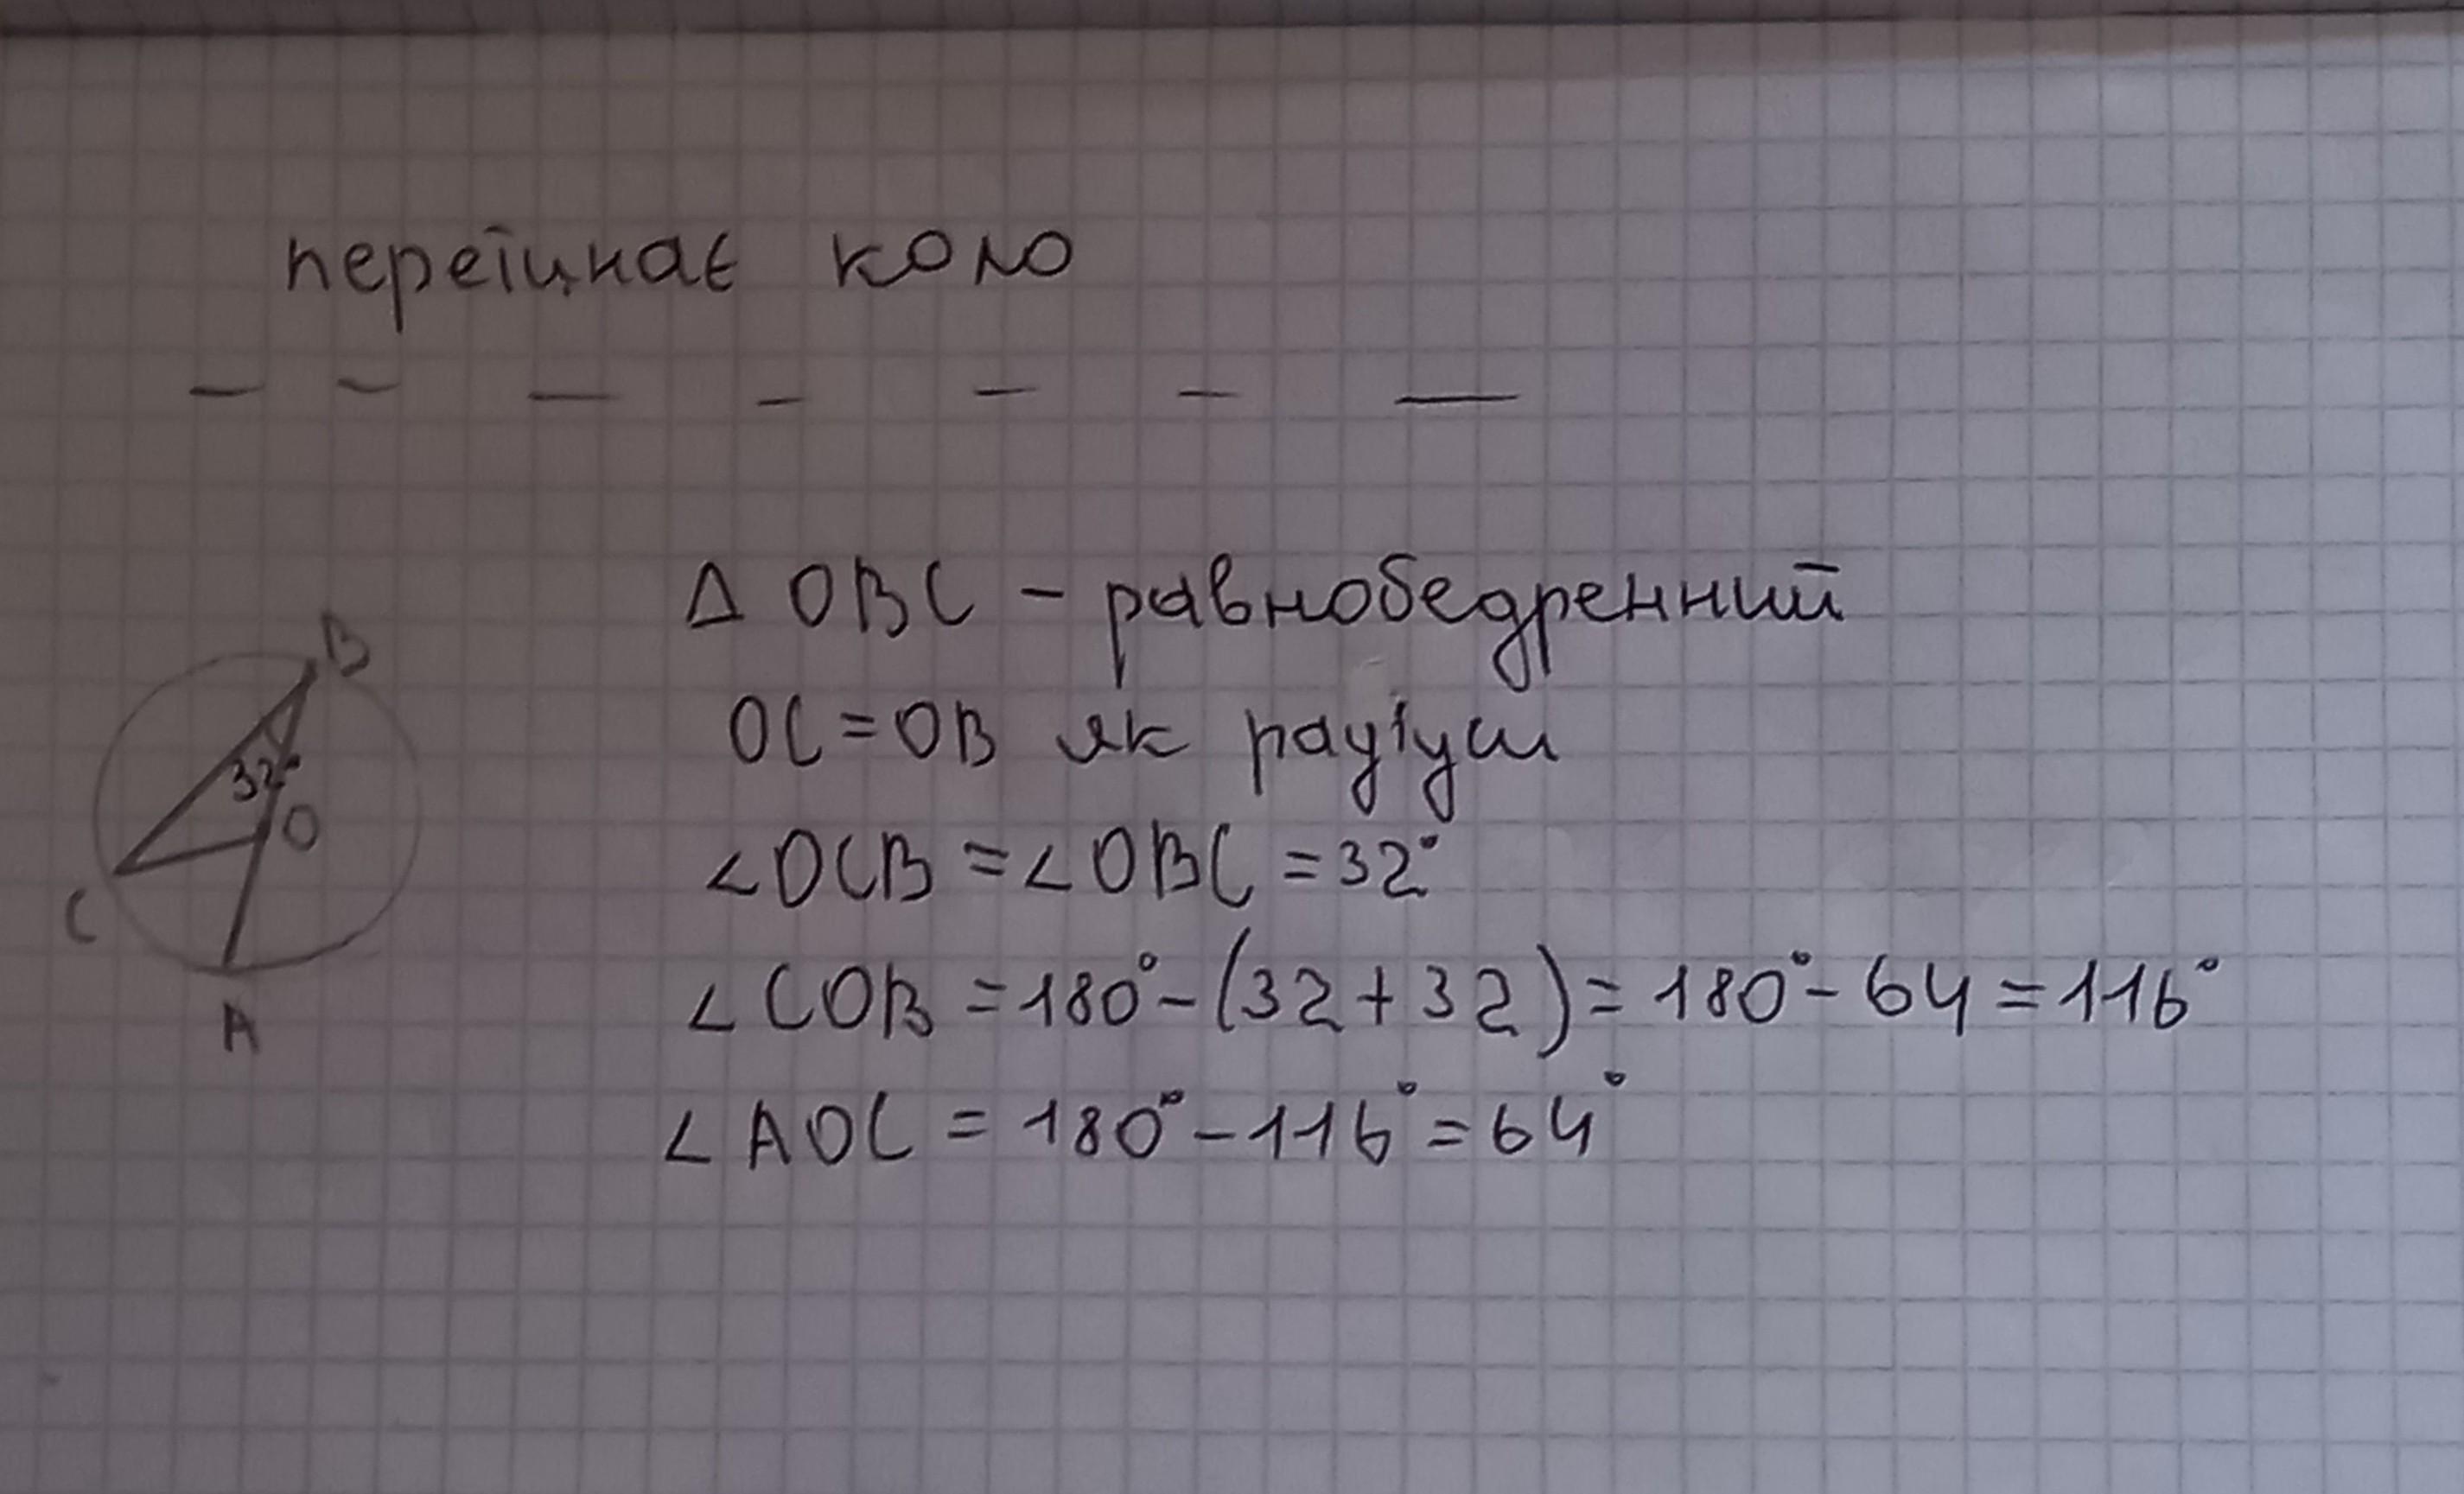 переїцнає коло
B
32°
O
C
A
Δ OBC - равнобедренний
OC = OB як рауіуси
∠OCB = ∠OBC = 32°
∠COB = 180° - (32 + 32) = 180° - 64 = 116°
∠AOC = 180° - 116° = 64°